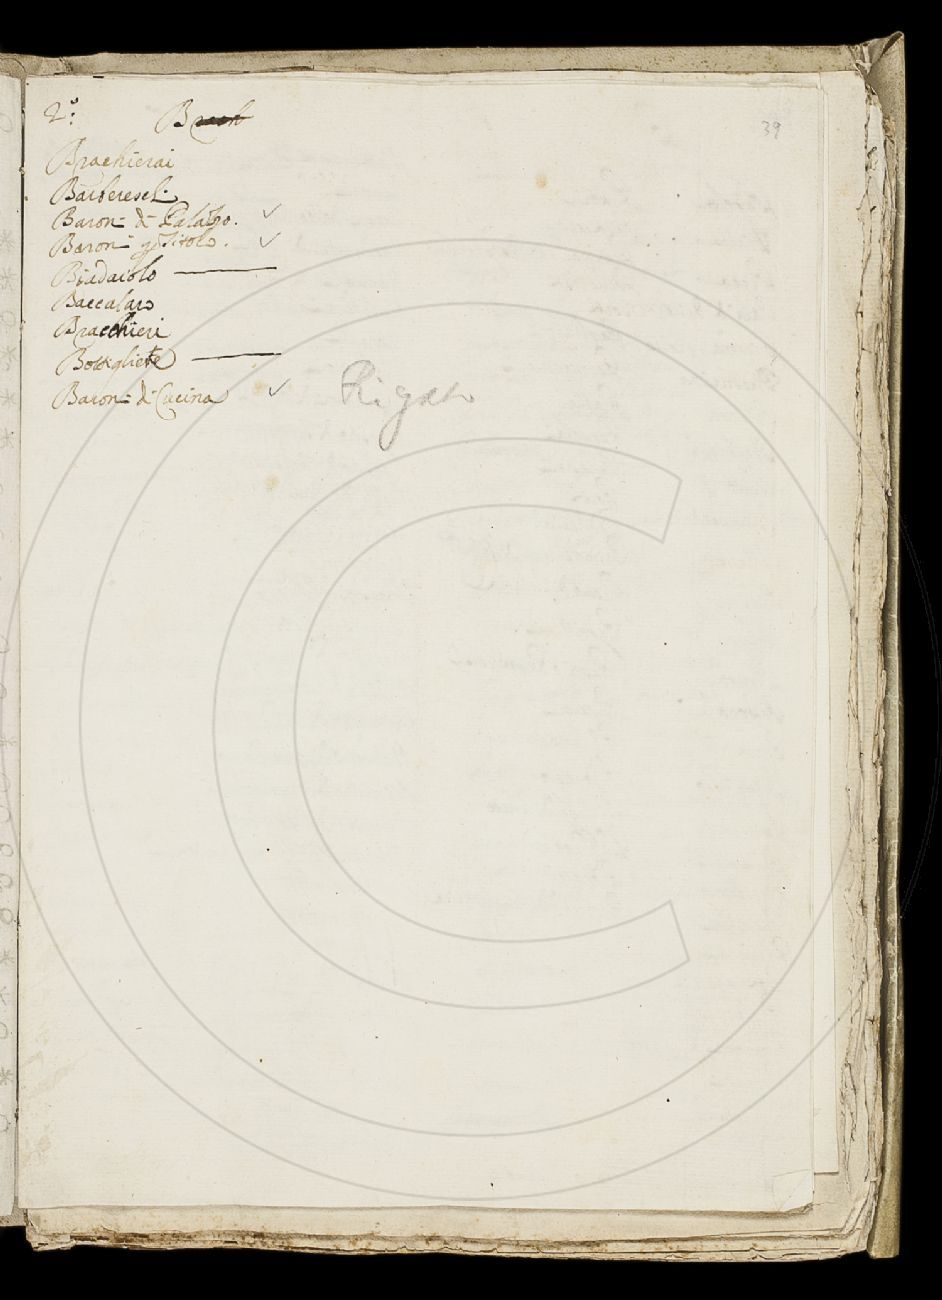 2.° B
39
Brachierai
Barbereschi
Baron: di Palazzo.
Baron: p Titolo.
Biadaiolo
Baccalaro
Bracchieri
Bottigliere
Baron: di Cucina